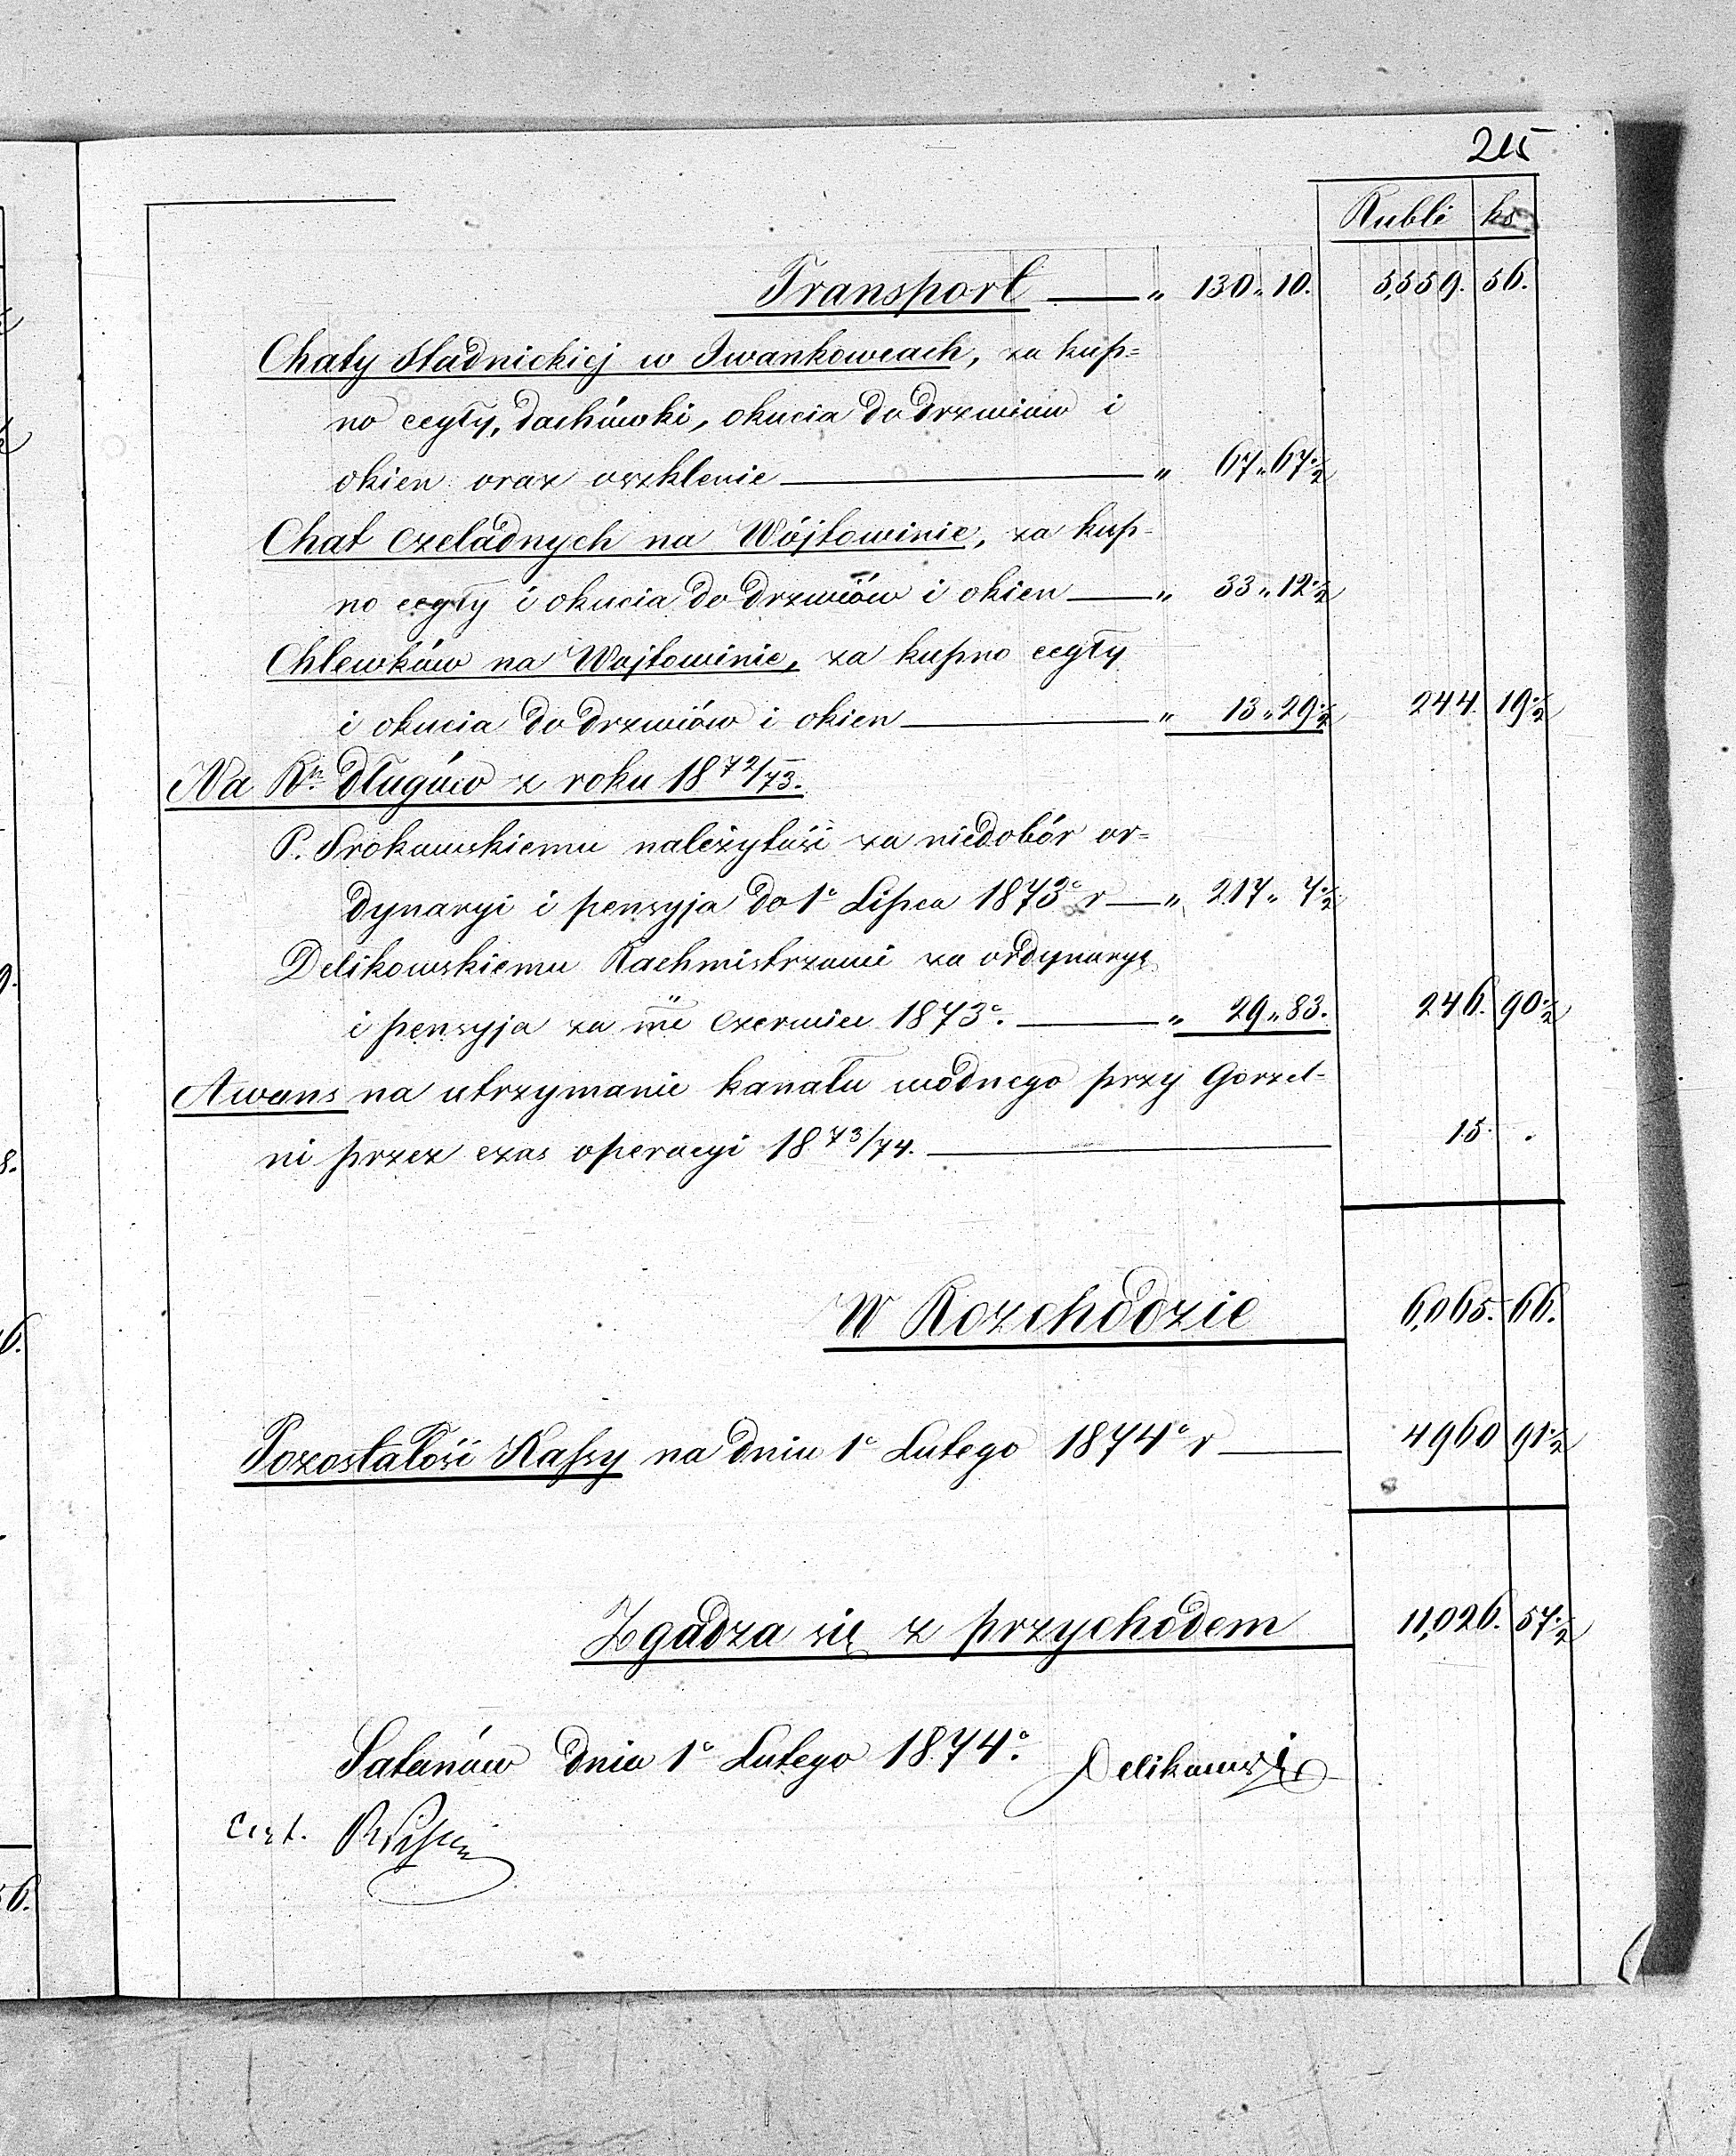 215
Rubli ks
Transport — „ 130 „ 10. 5,559. 56.
Chaty Stadnickiej w Iwankowcach, za kup=
no cegły, dachówki, okucia do drzwiów i
okien oraz oszklenie — „ 67 „ 67 1/2
Chat czeladnych na Wójtowinie, za kup-
no cegły i okucia do drzwiów i okien — „ 33 „ 12 1/2
Chlewków na Wojtowinie, za kupno cegły
i okucia do drzwiów i okien — „ 13 „ 29 1/2 244. 19 1/2
Na Rn długów z roku 1872/73.
P. Srokowskiemu należytość za niedobór or=
dynaryi i pensyja do 1o Lipca 1873o r — „ 217 „ 7 1/2
Delikowskiemu Rachmistrzowi za ordynaryę
i pensyja za mc Czerwiec 1873o. — „ 29 „ 83. 246. 90 1/2
Awans na utrzymanie kanału wodnego przy Gorzel-
ni przez czas operacyi 1873/74. — 15. .
W Rozchodzie 6,065. 66.
Pozostałość Kassy na dniu 1o Lutego 1874o r — 4960 91 1/2
Zgadza się z przychodem 11,026. 57 1/2
Satanów dnia 1o Lutego 1874o. Delikowski